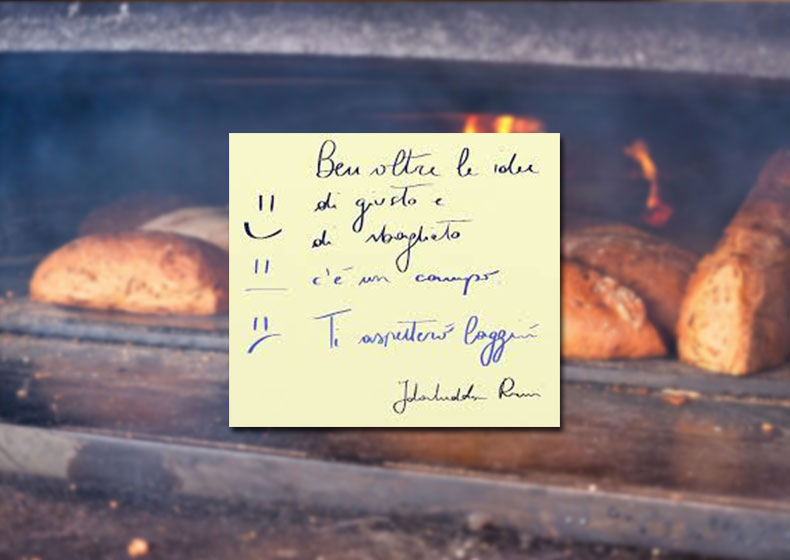 Ben oltre le idee
di giusto e
di sbagliato
c'è un campo.
Ti aspetterò laggiù
Jalaluddin Rumi